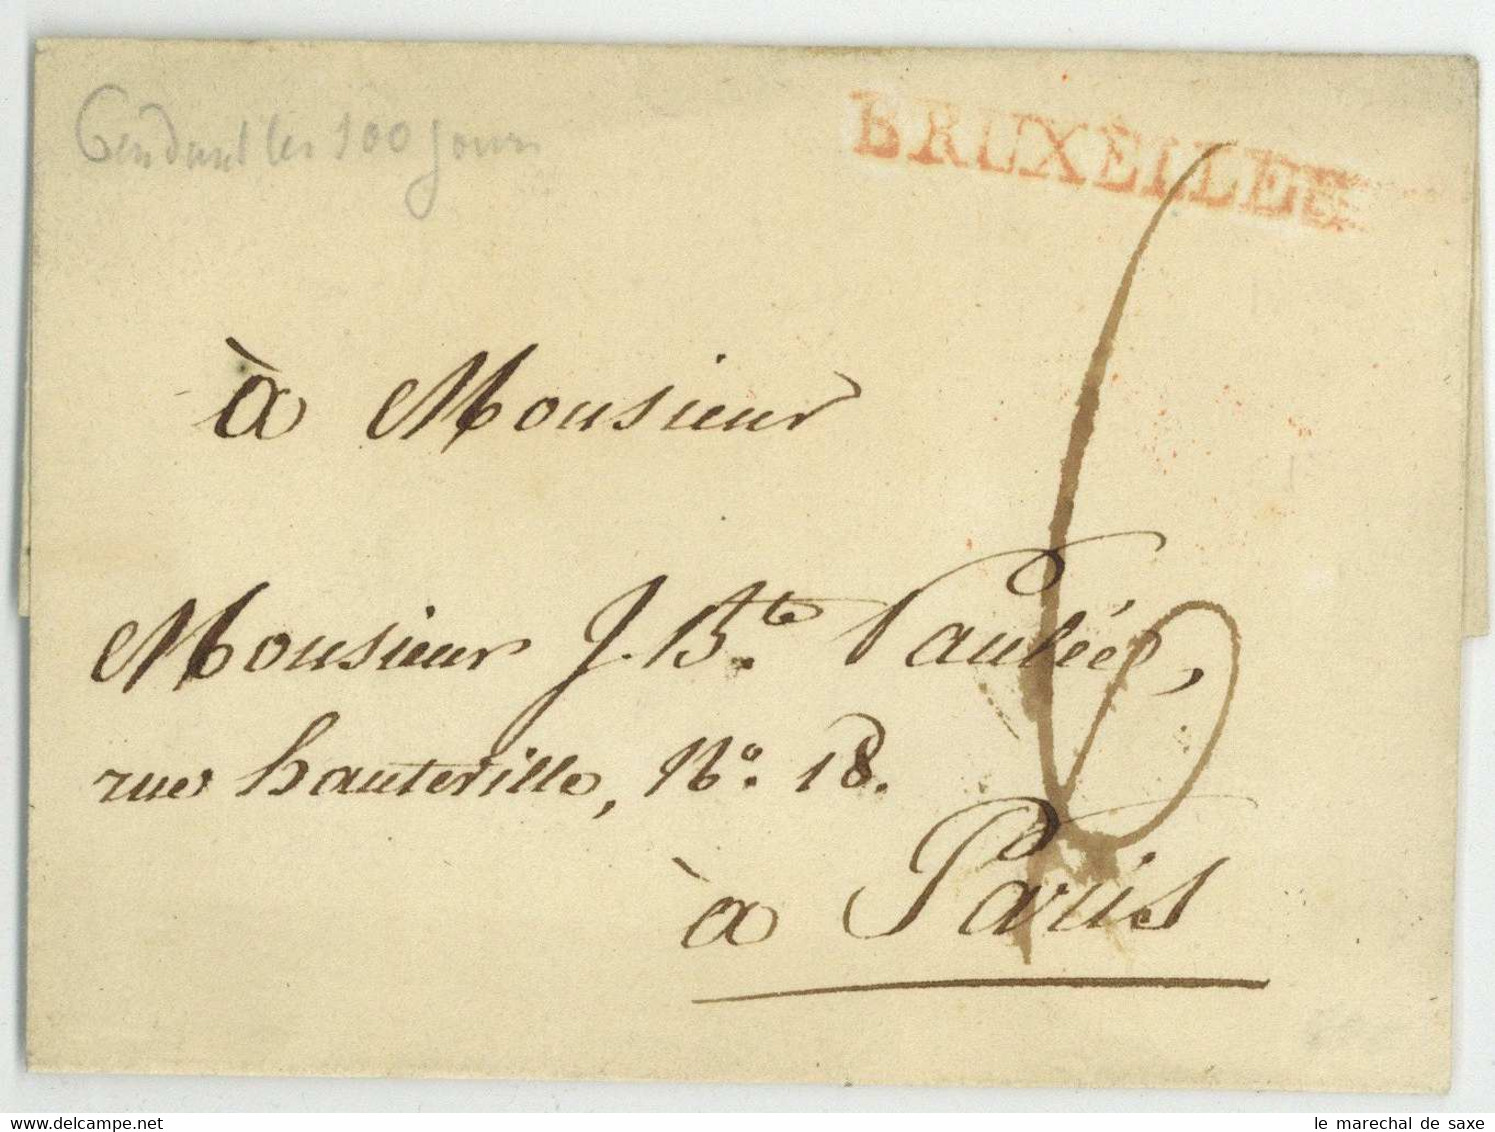 Pendant les 100 jours
BRUXELLES
à Monsieur
Monsieur J. Bte. Paulée,
rue hauteville, No. 18.
à Paris
6
www.delcampe.net
le marechal de saxe